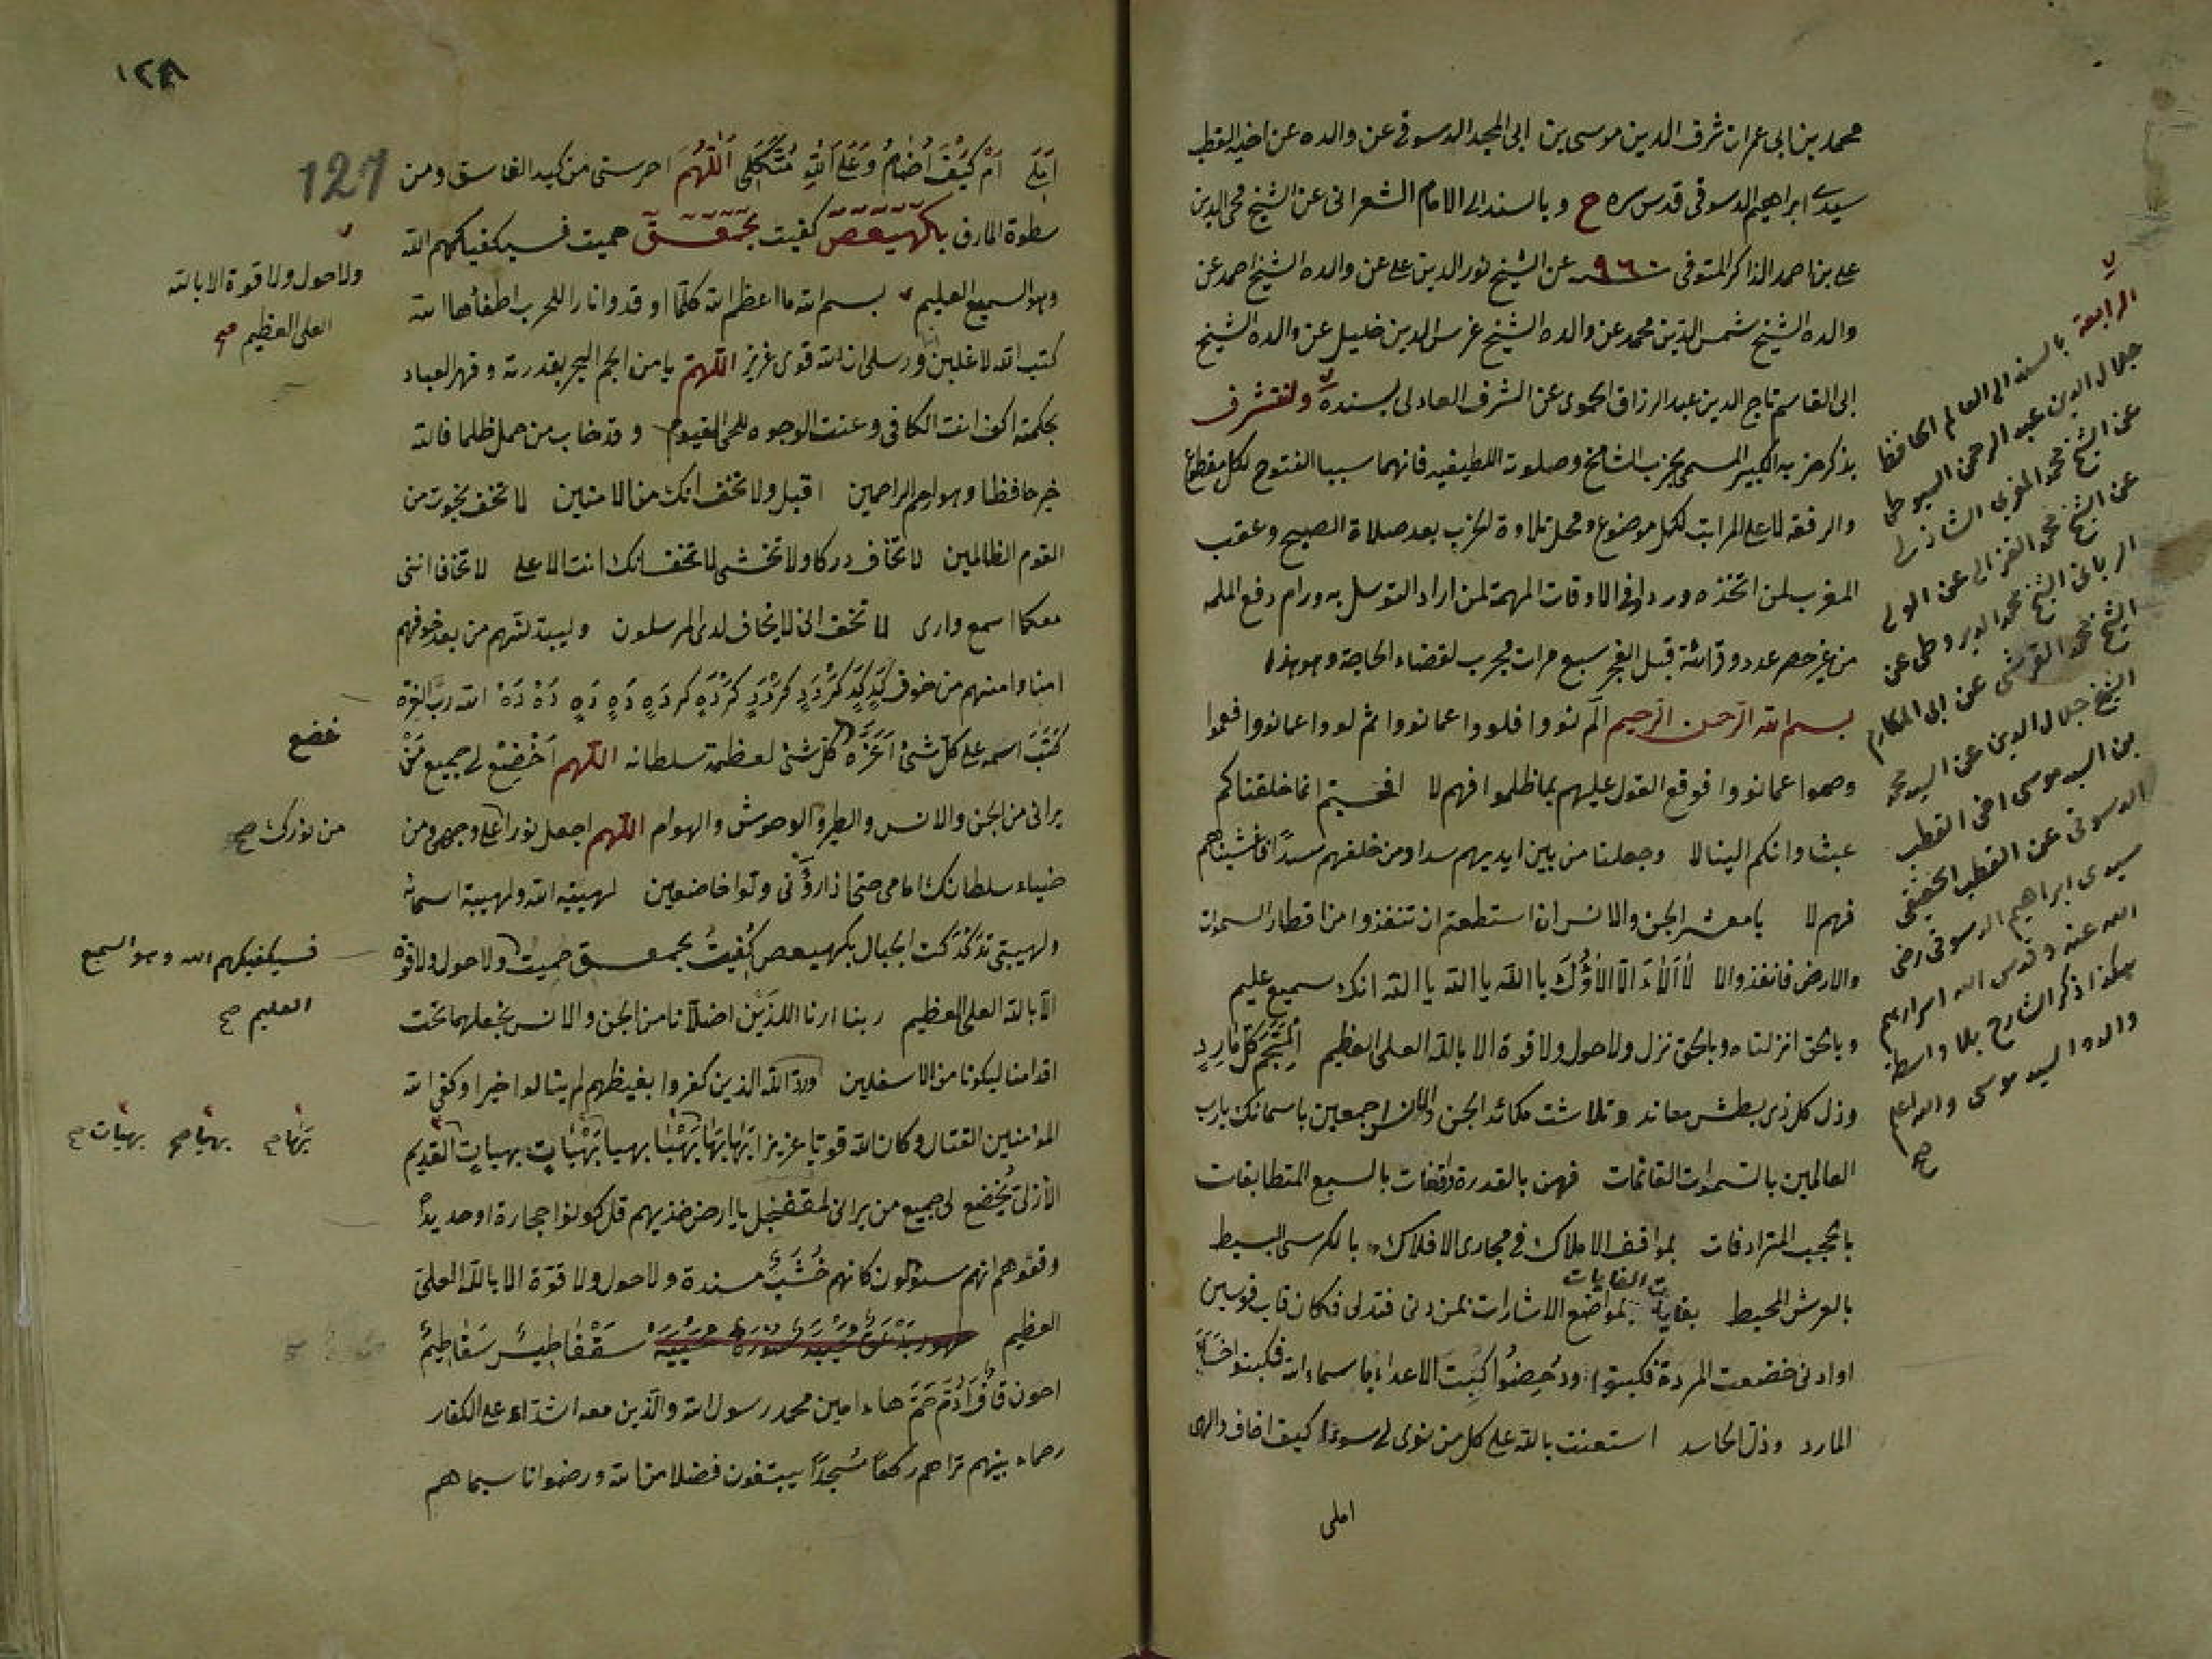 محمد بن ابى عمران شرف الدين موسى بن ابى المجد الدسوقى عن والده عن اخيه القطب
سيدى ابراهيم الدسوقى قدس سره ح وبالسند الى الامام الشعرانى عن الشيخ محى الدين
على بن احمد الذاكر المتوفى ٩٦٠ عن الشيخ نور الدين على عن والده الشيخ احمد عن
والده الشيخ شمس الدين محمد عن والده الشيخ غرس الدين خليل عن والده الشيخ
ابى القاسم تاج الدين عبد الرزاق الحموى عن الشرف العادلى بسنده ولنتشرف
بذكر حزبه الكبير المسمى بحزب الشامخ وصلوته اللطيفيه فانهما سببا الفتوح لكل مقطوع
والرفعة لاعلى المراتب لكل موضوع ومحل تلاوة الحزب بعد صلاة الصبح وعقب
المغرب لمن اتخذه وردا وفى الاوقات المهمة لمن اراد التوسل به ورام دفع الملمه
من غير حصر عدد وقرائة قبل الفجر سبع مرات مجرب لقضاء الحاجة وهو هذا
بسم الله الرحمن الرحيم الم نووا فلووا عمانووا ثم لووا عمانووا فعموا
وصموا عمانووا فوقع القول عليهم بما ظلموا فهم لا افحسبتم انما خلقناكم
عبثا وانكم الينا لا وجعلنا من بين ايديهم سدا ومن خلفهم سدًا فاغشيناهم
فهم لا يا معشر الجن والانس ان استطعتم ان تنفذوا من اقطار السموات
والارض فانفذوا لا لا آلاء الا الاؤك يا الله يا الله يا الله انك سميع عليم
وبالحق انزلناه وبالحق نزل ولا حول ولا قوة الا بالله العلى العظيم كل مارد
وذل كل ذى بطش معاند وتلاشت مكائد الجن والانس اجمعين باسمائك يا رب
العالمين بالسموات القائمات فهن بالقدرة واقفات بالسبع المتطابقات
بالحجب المترادفات بمواقف الاملاك فى مجارى الافلاك بالكرسى البسيط
بالعرش المحيط بغاية الغايات بمواضع الاشارات بمن دنى فتدلى فكان قاب قوسين
او ادنى خضعت المردة فكبتوا ودحضوا كبت الاعداء باسماء الله فكبتوا
المارد وذل الحاسد استعنت بالله على كل من نوى لى سوءا كيف اخاف والهى
املى
الرابعة بالسند الى العالم الحافظ
جلال الدين عبد الرحمن السيوطى
عن الشيخ محمد المغربى الشاذلى
عن الشيخ محمد الغزالى عن الولى
الربانى الشيخ محمد الديروطى عن
الشيخ محمد القرشى عن ابى المكارم
الشيخ جلال الدين عن السيد محمد
بن السيد موسى اخى القطب
الدسوقى عن القطب الحقيقى
سيدى ابراهيم الدسوقى رضى
الله عنه وقدس الله اسرارهم
هكذا ذكر الشارح بلا واسطة
والده السيد موسى والله اعلم
صح
١٢٨
127
املى ام كيف اضام وعلى الله متكلى اللهم احرسنى من كيد الفاسق ومن
سطوة المارق بكهيعص كفيت بحمعسق حميت فسيكفيكهم الله
وهو السميع العليم بسم الله ما اعظم الله كلما اوقدوا نارا للحرب اطفأها الله
كتب الله لاغلبن انا ورسلى ان الله قوى عزيز اللهم يا من الجم البحر بقدرته وقهر العباد
بحكمته اكف انت الكافى وعنت الوجوه للحى القيوم وقد خاب من حمل ظلما فالله
خير حافظا وهو ارحم الراحمين اقبل ولا تخف انك من الامنين لا تخف نجوت من
القوم الظالمين لا تخاف دركا ولا تخشى لا تخف انك انت الاعلى لا تخافا اننى
معكما اسمع وارى لا تخف انى لا يخاف لدى المرسلون وليبدلنهم من بعد خوفهم
امنا وامنهم من خوف كد كد كردد كردد كرده كرده ده ده ده ده الله رب العزة
كتب اسمه على كل شئ اعزه كل شئ لعظمة سلطانه اللهم اخضع لى جميع من
يرانى من الجن والانس والطير والوحوش والهوام اللهم اجعل نورا على وجهى ومن
ضياء سلطانك امامى حتى اذا رؤنى ولوا خاضعين لهيبة الله ولهيبة اسمائه
ولهيبتى تدكدكت الجبال بكهيعص كفيت بحمعسق حميت ولا حول ولا قوة
الا بالله العلى العظيم ربنا ارنا اللذين اضلانا من الجن والانس نجعلهما تحت
اقدامنا ليكونا من الاسفلين ورد الله الذين كفروا بغيظهم لم ينالوا خيرا وكفى الله
المؤمنين القتال وكان الله قويا عزيزا بهيا بهيات بهيات القديم
الازلى يخضع لى جميع من يرانى لمقفنجل يا ارض خذيهم قل كونوا حجارة او حديدًا
وقفوهم انهم مسؤلون كانهم خشب مسندة ولا حول ولا قوة الا بالله العلى
العظيم سقفاطيس سقاطيم
احون قاف ادم حم هاء امين محمد رسول الله والذين معه اشداء على الكفار
رحماء بينهم تراهم ركعًا سجدًا يبتغون فضلا من الله ورضوانا سيماهم
ولا حول ولا قوة الا بالله
العلى العظيم صح
خضع
من نورك صح
فسيكفيكهم الله وهو السميع
العليم صح
بهيا صح بهيات صح